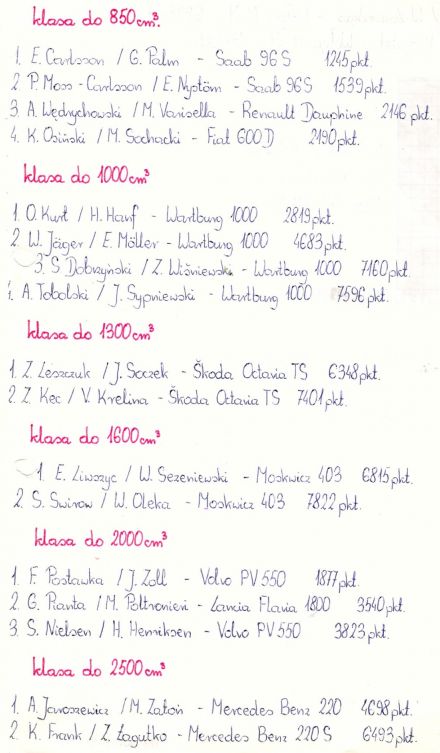 klasa do 850cm³.
1. E. Carlsson / G. Palm - Saab 96S 1245pkt.
2 P. Moss - Carlsson / E. Nyström - Saab 96S 1539pkt.
3 A. Wędrychowski / M. Varisella - Renault Dauphine 2146 pkt.
4. K. Osiński / M. Sochacki - Fiat 600D 2190pkt.
klasa do 1000cm³
1. O. Kurt / H. Hanf - Wartburg 1000 2819pkt.
2 W. Jäger / E. Möller - Wartburg 1000 4683pkt.
3. S Dobrzyński / Z. Wiśniewski - Wartburg 1000 7160pkt.
4. A. Tobolski / J. Sypniewski - Wartburg 1000 7596pkt.
klasa do 1300cm³
1. Z. Leszczuk / J. Soczek - Škoda Octavia TS 6348pkt.
2. Z. Kec / V. Krelina - Škoda Octavia TS 7401pkt.
klasa do 1600cm³
1. E. Liwszyc / W. Sezeniewski - Moskwicz 403 6815pkt.
2. S. Swirow / W. Oleka - Moskwicz 403 7822pkt.
klasa do 2000cm³
1. F. Postawka / J. Zoll - Volvo PV 550 1877pkt.
2. G. Pianta / M. Poltronieri - Lancia Flavia 1800 3540pkt.
3. S. Nielsen / H. Henriksen - Volvo PV 550 3823pkt.
klasa do 2500cm³
1. A. Jaroszewicz / M. Zatoń - Mercedes Benz 220 4698pkt.
2. K. Frank / Z. Łagutko - Mercedes Benz 220 S 6493pkt.